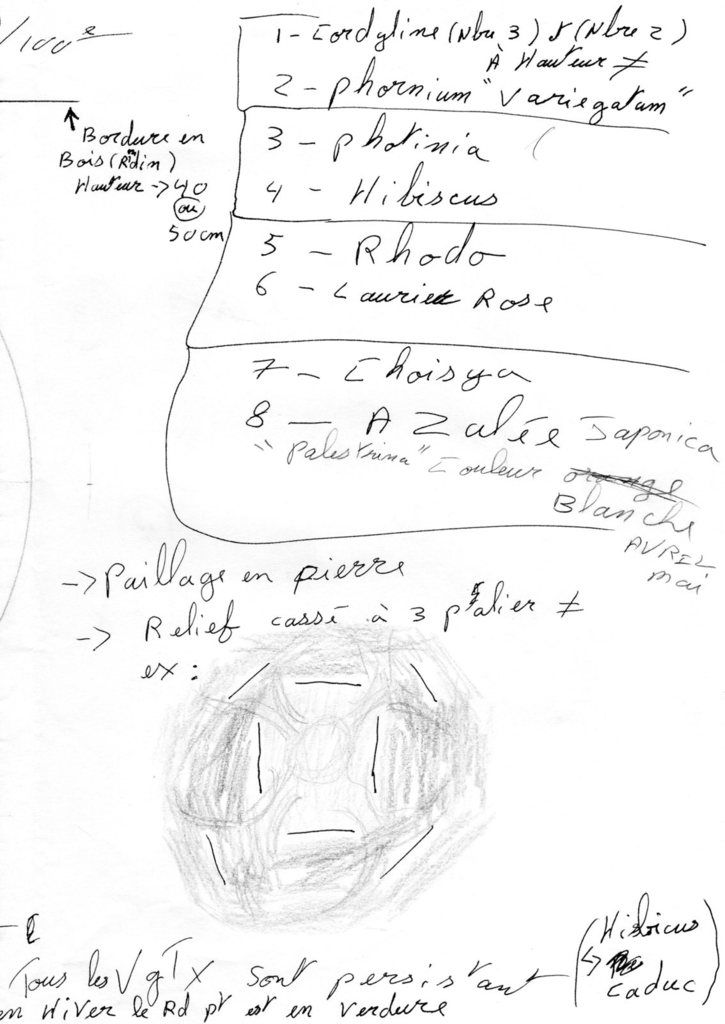 1/100e
1 - Cordyline (Nbre 3) et (Nbre 2)
À Hauteur ≠
2 - phornium "Variegatum"
Bordure en
Bois (Rdin)
Hauteur -> 40
ou
50cm
3 - photinia (
4 - Hibiscus
5 - Rhodo
6 - Laurier Rose
7 - Choisya
8 - AZalée Japonica
"Palestrina" Couleur orange
Blanche
AVREL
mai
-> Paillage en pierre
-> Relief cassé à 3 palier ≠
ex :
(Hibicus
Tous les VgTx sont persistant
↳ caduc)
en Hiver le Rd pt est en verdure